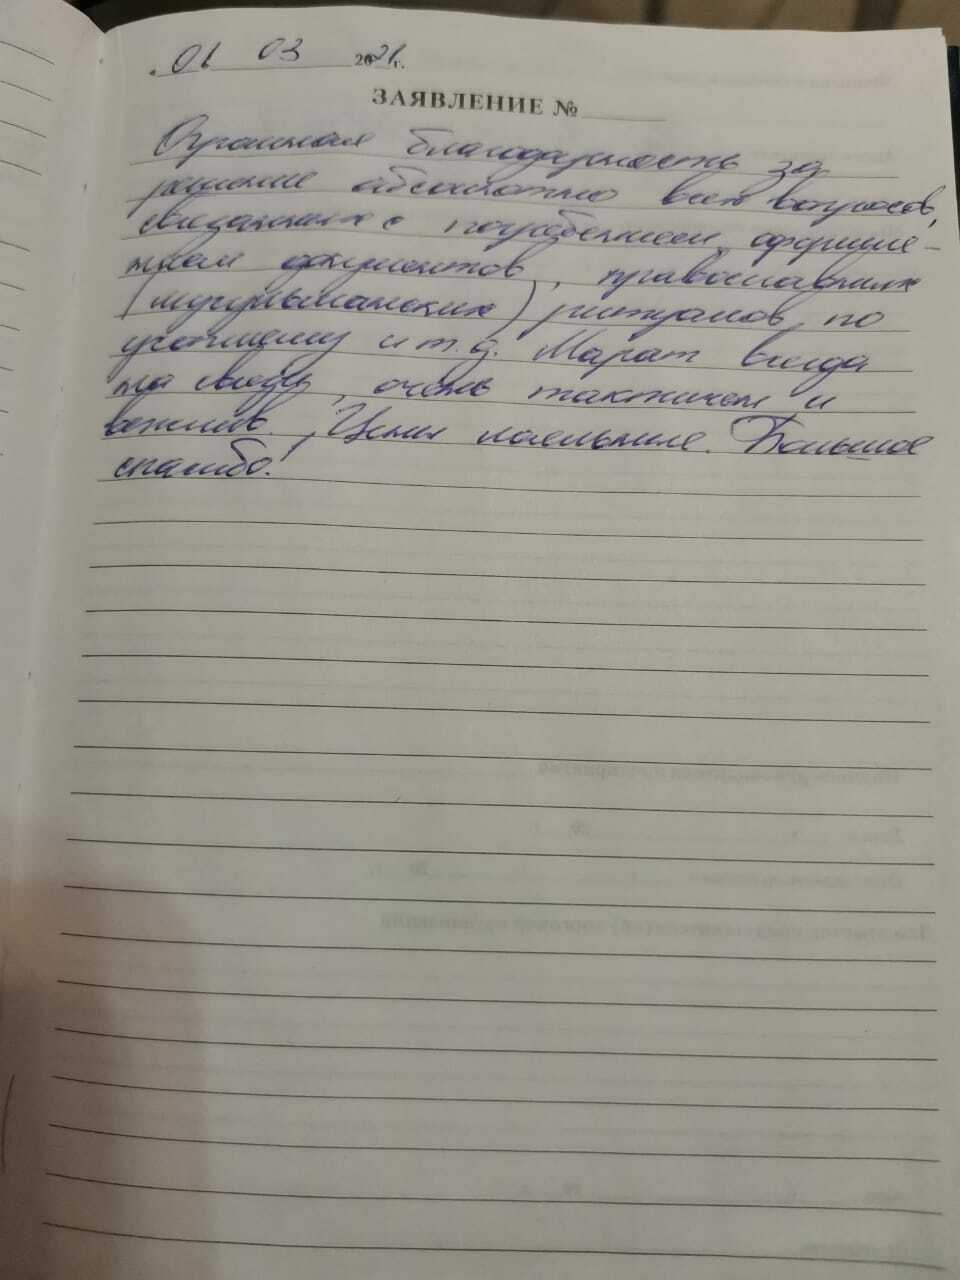 01 03 2021г.
ЗАЯВЛЕНИЕ №
Огромная благодарность за
решение абсолютно всех вопросов,
связанных с погребением, оформле-
нием документов, православных
(мусульманских) ритуалов по
усопшему и т.д. Марат всегда
на связи, очень тактичен и
вежлив. Цены лояльные. Большое
спасибо!